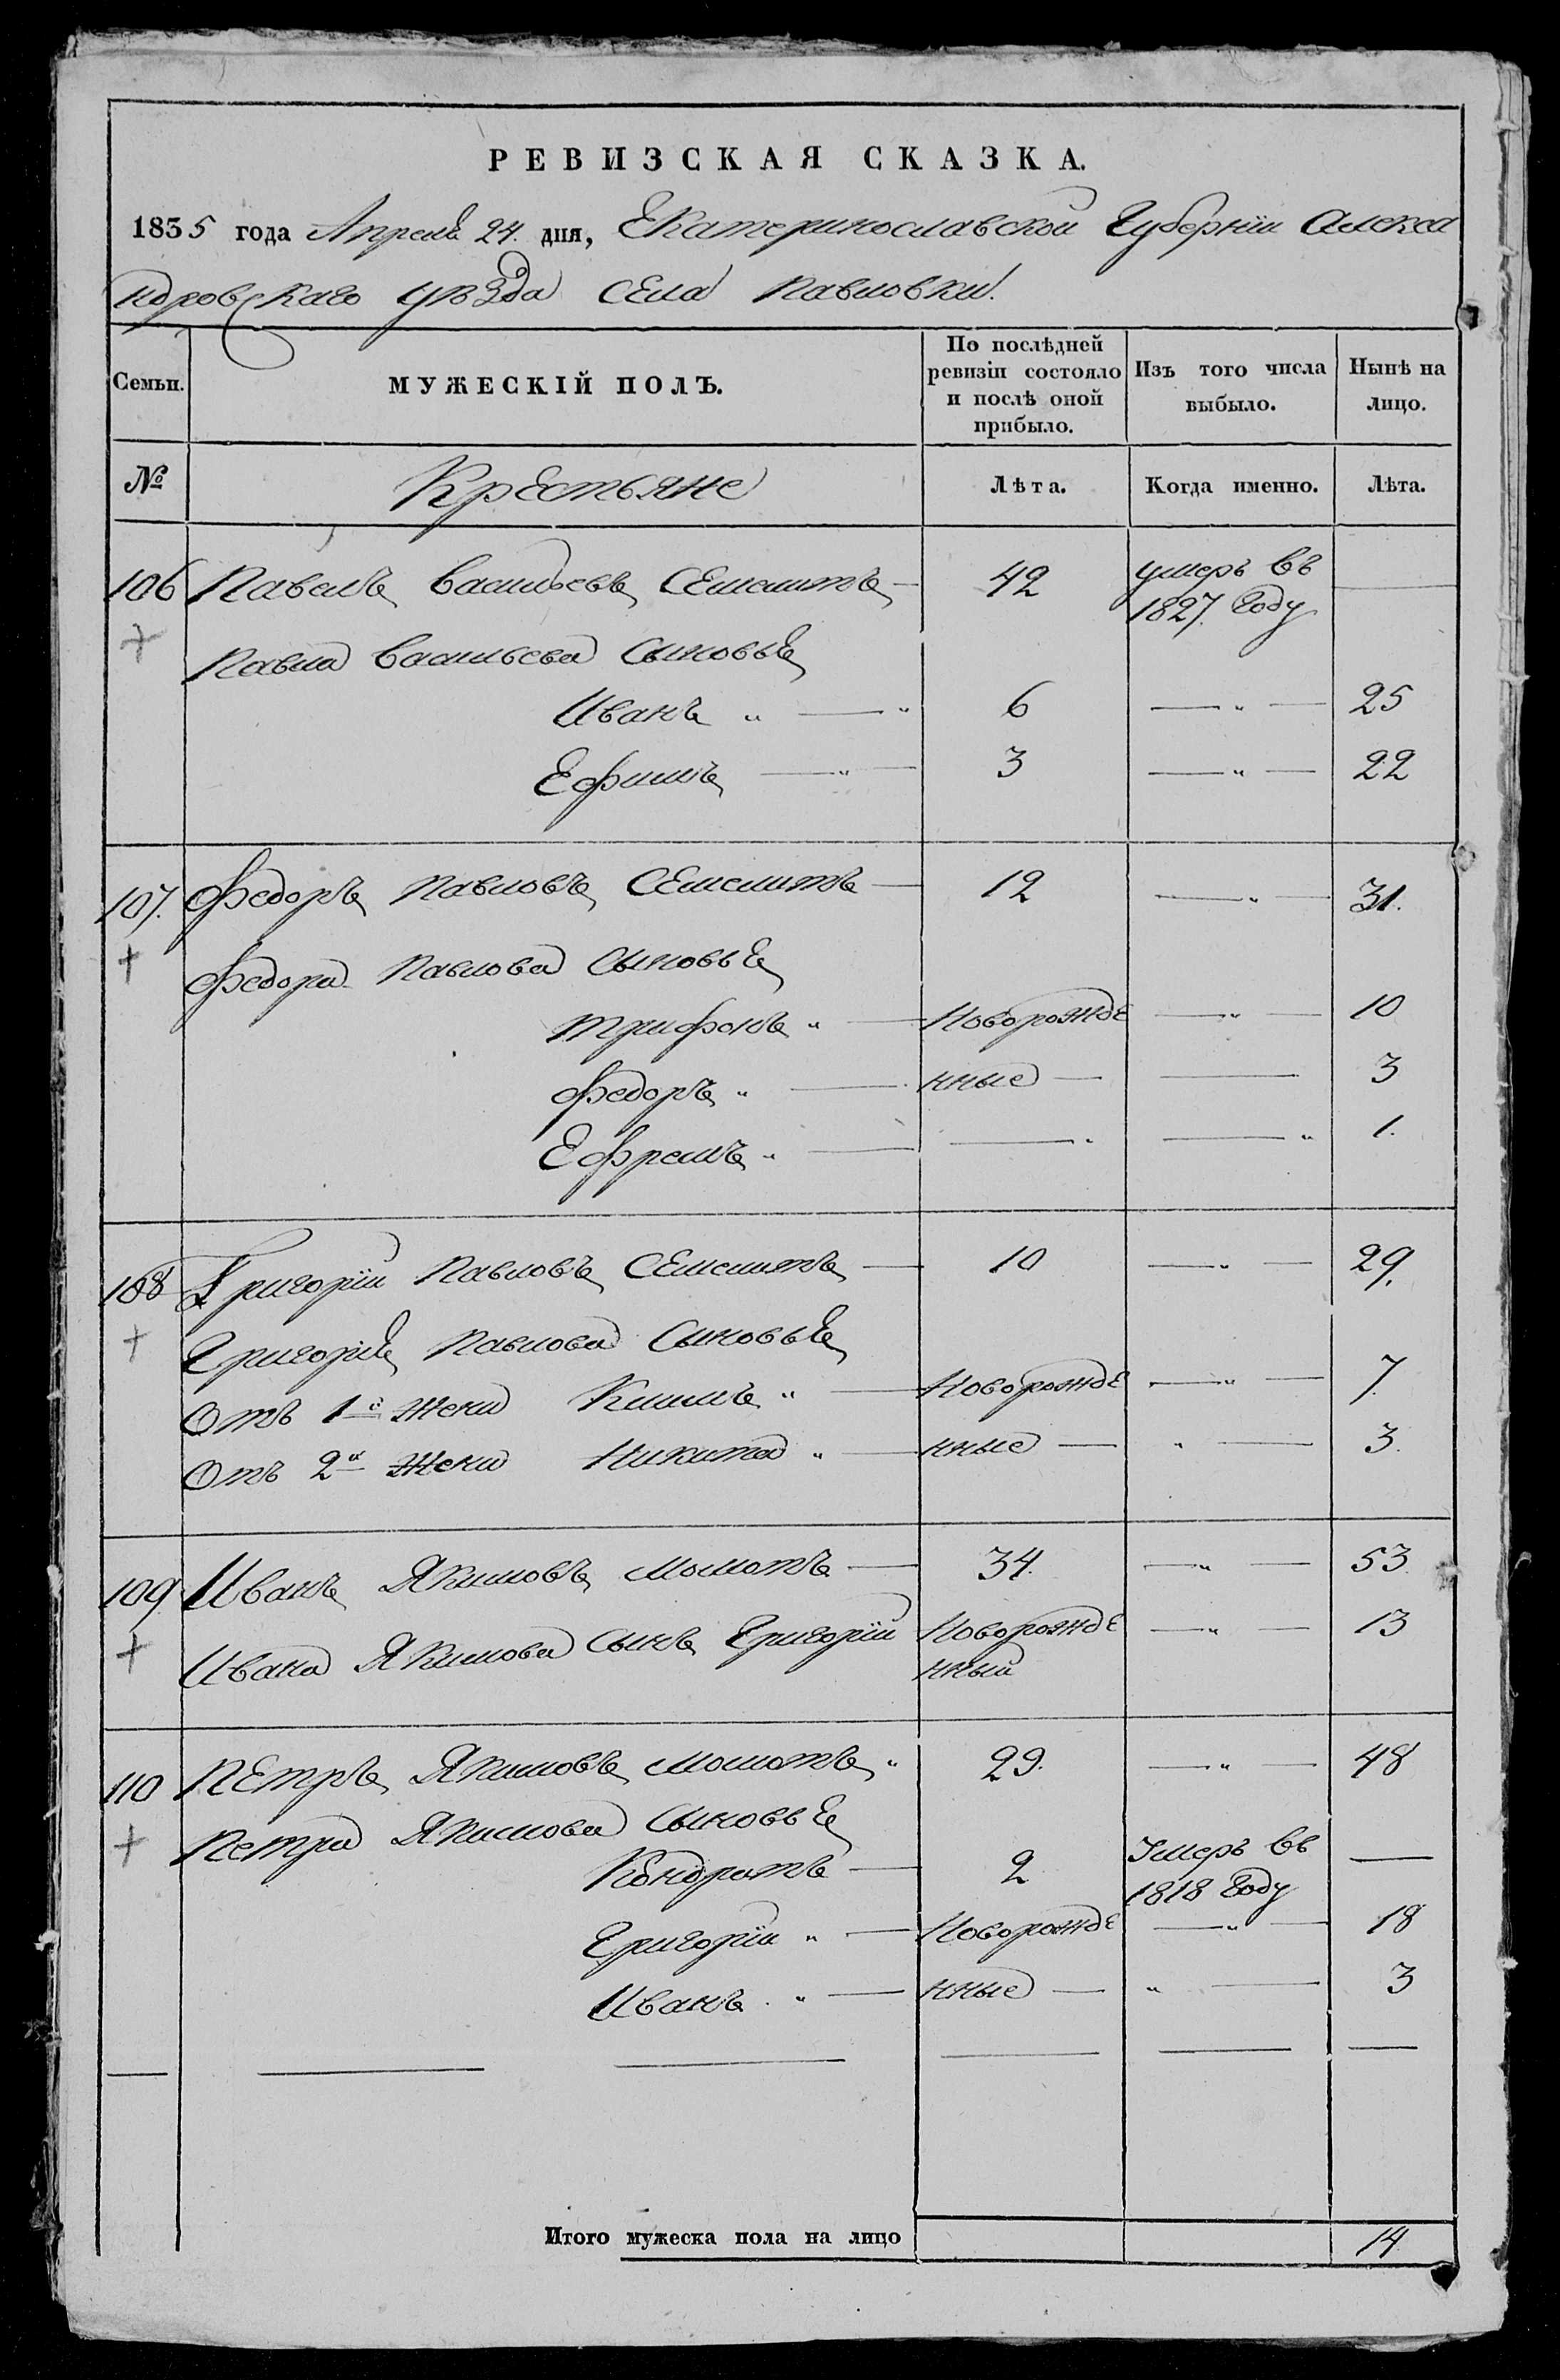 РЕВИЗСКАЯ СКАЗКА.
1835 года Апреля 24. дня, Екатеринославской Губернии Алекса
ндровскаго уѣзда села Павловки.
Семьи. МУЖЕСКІЙ ПОЛЪ. По послѣдней ревизіи состояло и послѣ оной прибыло. Изъ того числа выбыло. Нынѣ на лицо.
№ Крестьяне Лѣта. Когда именно. Лѣта.
106 Павелъ Васильевъ Семемитъ — 42 умеръ въ —
1827. Году
Павла Васильева Сыновья
Иванъ „ — „ 6 — „ — 25
Ефимъ — „ — 3 — „ — 22
107. Федоръ Павловъ Семемитъ — 12 — „ — 31.
Федора Павлова Сыновья
Трифонъ „ — Новорожде — „ — 10
Федоръ „ — нные — — 3
Ефремъ „ — — „ — „ 1.
108 Григорій Павловъ Семемитъ — 10 — „ — 29.
Григорія Павлова Сыновья
Отъ 1й Жены Климъ „ — Новорожде — „ — 7.
Отъ 2й Жены Никита „ — нные — „ — 3.
109 Иванъ Якимовъ Момотъ — 34. — „ — 53.
Ивана Якимова Сынъ Григорій Новорожде — „ — 13
нный
110 Петръ Якимовъ Момотъ „ 29. — „ — 48
Петра Якимова Сыновья
Кондратъ — 2 Умеръ въ —
1818 Году
Григорій „ — Новорожде — „ — 18
Иванъ „ — нные — „ — 3
Итого мужеска пола на лицо 14